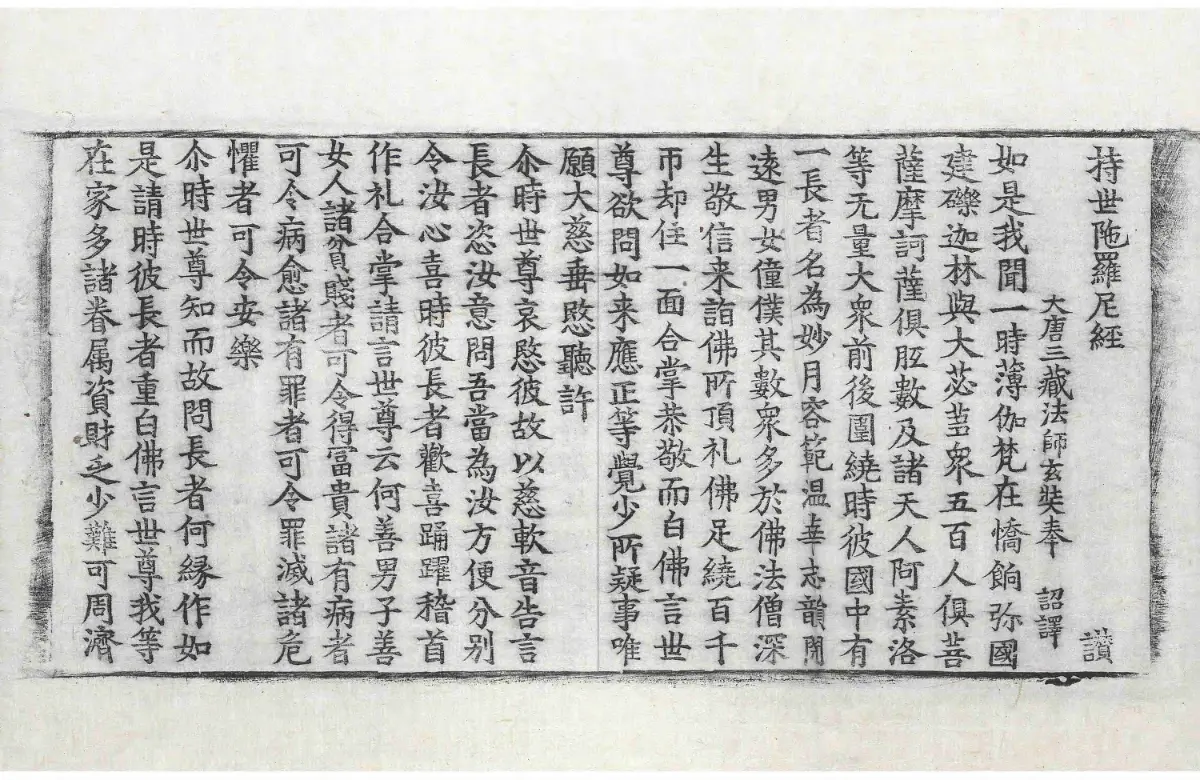 持世陁羅尼經 讃
大唐三藏法師玄奘奉 詔譯
如是我聞一時薄伽梵在憍餉弥國
建磔迦林與大苾蒭衆五百人俱菩
薩摩訶薩俱胝數及諸天人阿素洛
等无量大衆前後圍繞時彼國中有
一長者名為妙月容範温華志韻閑
遠男女僮僕其數衆多於佛法僧深
生敬信来詣佛所頂礼佛足繞百千
帀却住一面合掌恭敬而白佛言世
尊欲問如来應正等覺少所疑事唯
願大慈垂愍聽許
尒時世尊哀愍彼故以慈軟音告言
長者恣汝意問吾當為汝方便分别
令汝心喜時彼長者歡喜踊躍稽首
作礼合掌請言世尊云何善男子善
女人諸貧賤者可令得富貴諸有病者
可令病愈諸有罪者可令罪滅諸危
懼者可令安樂
尒時世尊知而故問長者何緣作如
是請時彼長者重白佛言世尊我等
在家多諸眷属資財乏少難可周濟